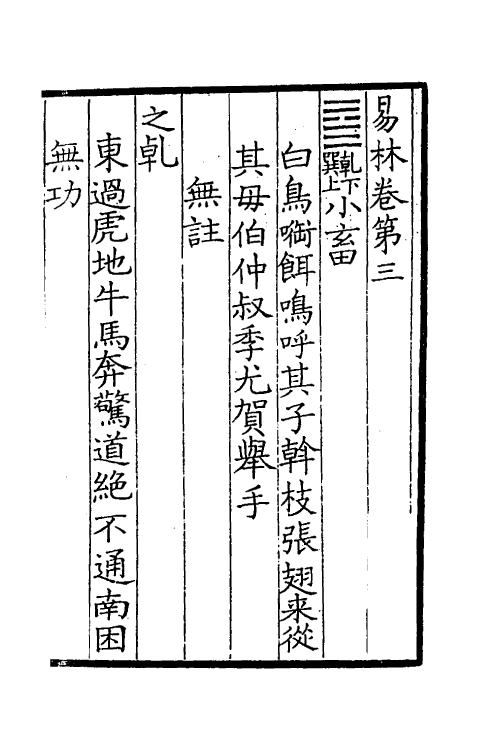 易林卷第三
䷈乹下巽上小畜
白鳥㗸餌鳴呼其子斡枝張翅来從
其毋伯仲叔季尤賀舉手
無註
之乹
東過虎地牛馬奔驚道絶不通南困
無功